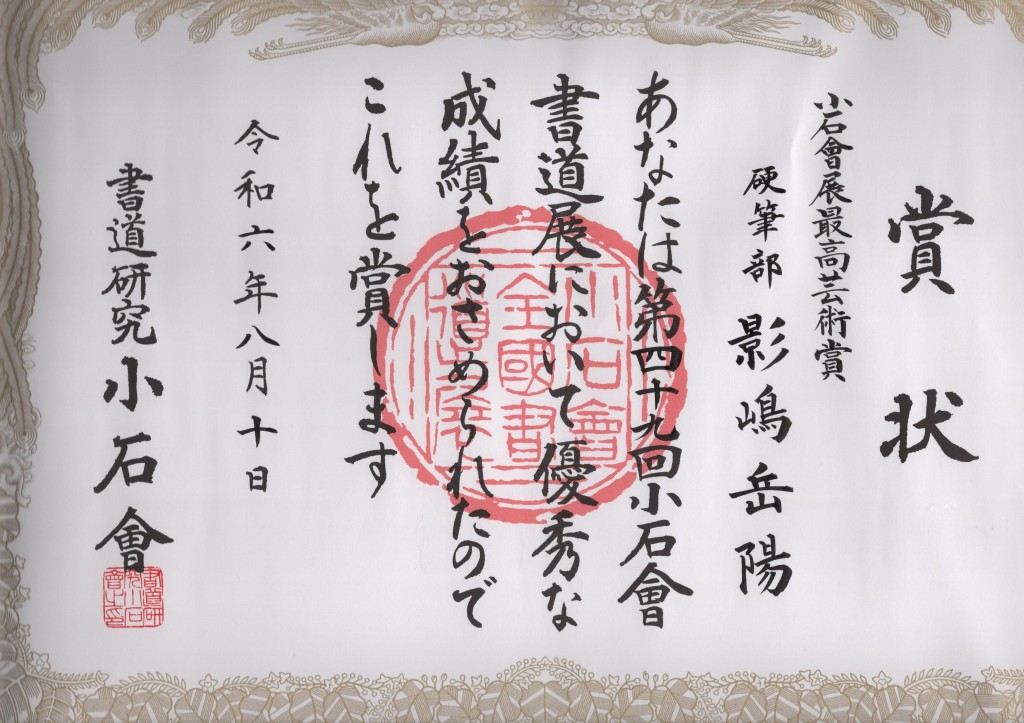 賞状
小石會展最高芸術賞
硬筆部 影嶋岳陽
あなたは第四十九回小石會
書道展において優秀な
成績をおさめられたので
これを賞します
令和六年八月十日
書道研究 小石會
小石會
全國書
道展